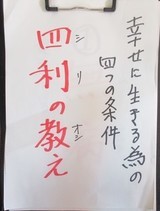 幸せに生きる為の
四つの条件
四利の教え
シリ オシ